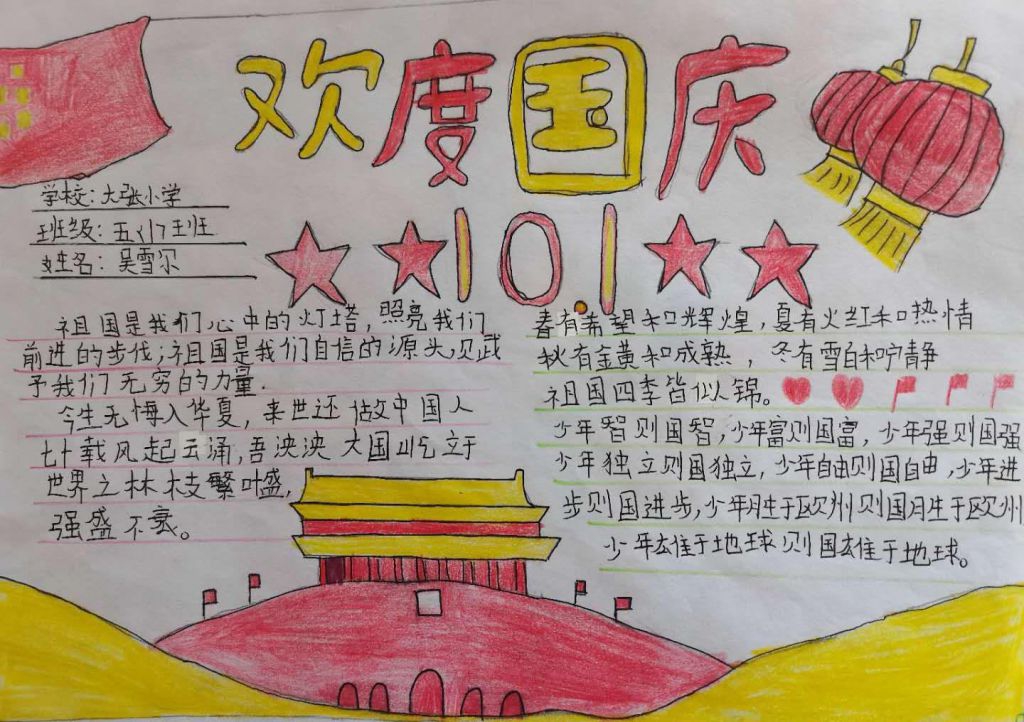 欢度国庆
10.1
学校:大张小学
班级:五(1)班
姓名:吴雪尔
祖国是我们心中的灯塔,照亮我们
前进的步伐;祖国是我们自信的源头,赋
予我们无穷的力量.
今生无悔入华夏,来世还做中国人
七十载风起云涌,吾泱泱大国屹立于
世界之林枝繁叶盛,
强盛不衰。
春有希望和辉煌,夏有火红和热情
秋有金黄和成熟,冬有雪白和宁静
祖国四季皆似锦。
少年智则国智,少年富则国富,少年强则国强
少年独立则国独立,少年自由则国自由,少年进
步则国进步,少年胜于欧州则国胜于欧州
少年雄于地球则国雄于地球。